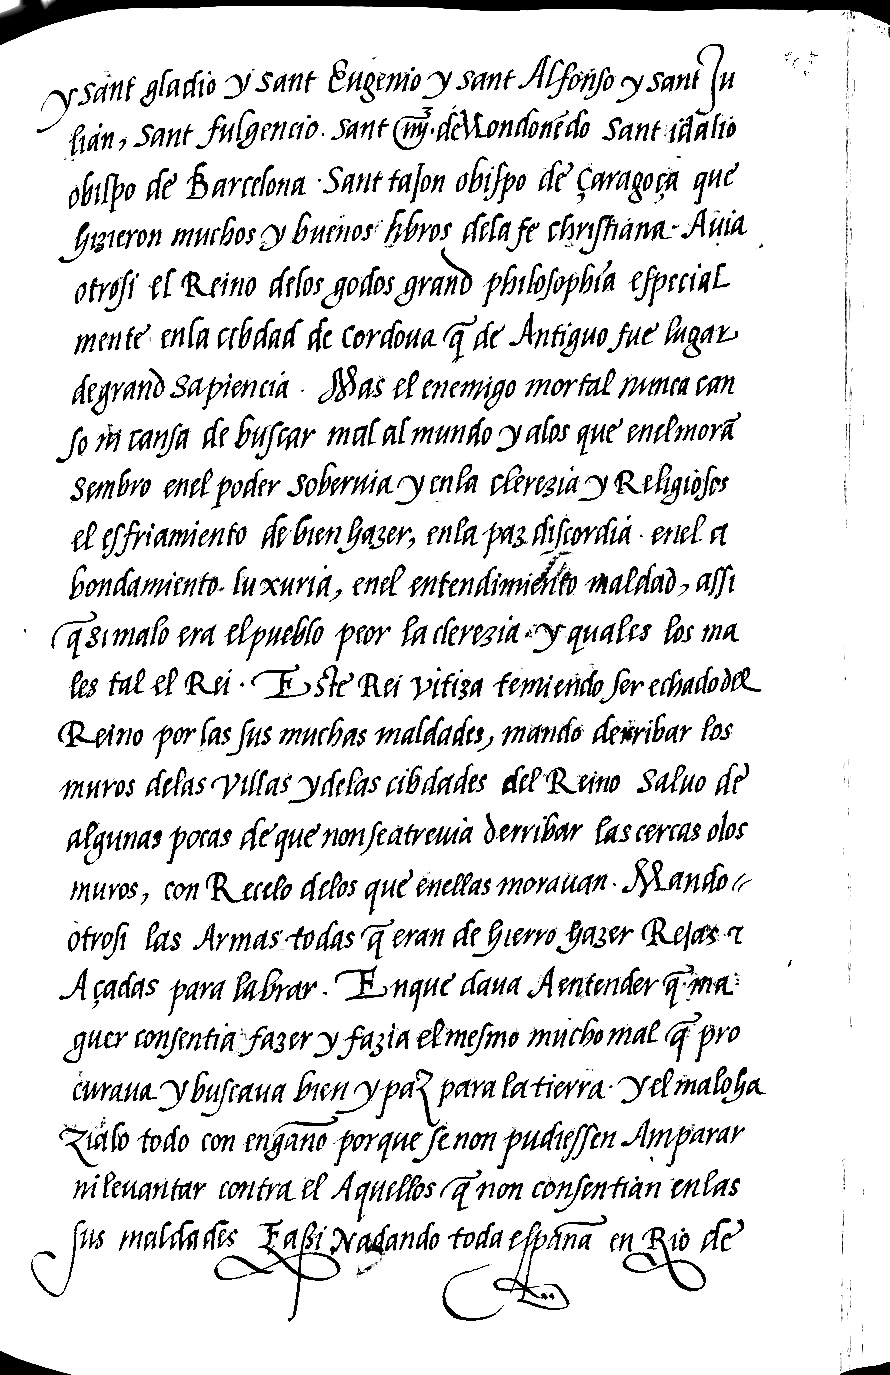 y sant gladio y sant Eugenio y sant Alfonso y sant Ju
lián, sant fulgencio. sant de Mondonẽdo sant idalio
obispo de Barcelona. Sant tajon obispo de çaragoça que
hizieron muchos y buenos libros dela fe christiana. Auia
otrosi el Reino delos godos grand philosophia especial
mente enla cibdad de cordoua q̃ de Antiguo fue lugar
degrand sapiencia. Mas el enemigo mortal nunca can
so ni cansa de buscar mal al mundo y alos que enel morã
sembro enel poder soberuia y enla clerezia y Religiosos
el esfriamiento de bien hazer, enla paz discordia. enel a
bondamiento. luxuria, enel entendimiento maldad, assi
q̃ si malo era el pueblo peor la clerezia y quales los ma
les tal el Rei. Este Rei vitiza temiendo ser echado del
Reino por las sus muchas maldades, mando derribar los
muros delas villas y delas cibdades del Reino saluo de
algunas pocas de que non se atreuia derribar las cercas o los
muros, con Recelo delos que enellas morauan. Mando
otrosi las Armas todas q̃ eran de hierro hazer Rejas τ
Açadas para labrar. En que daua A entender q̃ ma
guer consentia fazer y fazia el mesmo mucho mal q̃ pro
curaua y buscaua bien y paz para la tierra. y el malo ha
zialo todo con engãno porque se non pudiessen Amparar
ni leuantar contra el Aquellos q̃ non consentian en las
sus maldades E aßi Nadando toda espãna en Rio de